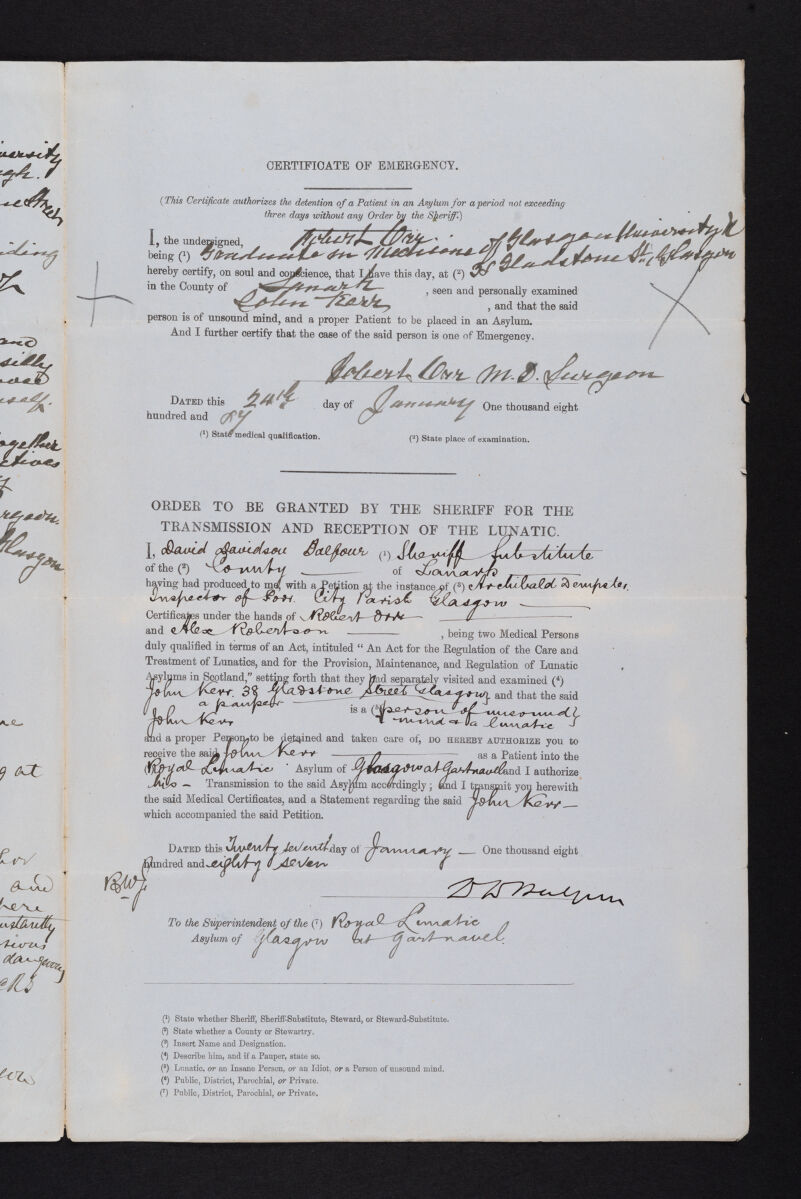 iversity
ugh.
Street
iding
and
silly
self.
ogether
ctives
rgeon.
Glasgow
ne
g at
and
here
nstantly
dangerous
CERTIFICATE OF EMERGENCY.
(This Certificate authorizes the detention of a Patient in an Asylum for a period not exceeding
three days without any Order by the Sheriff.)
I, the undersigned, Robert Orr
being (¹) Graduate in Medicine of Glasgow University &
hereby certify, on soul and conscience, that I have this day, at (²) 38 Gladstone St., Glasgow
in the County of Lanark , seen and personally examined
John Kerr , and that the said
person is of unsound mind, and a proper Patient to be placed in an Asylum.
And I further certify that the case of the said person is one of Emergency.
Robert Orr M.D. Surgeon
DATED this 24th day of January One thousand eight
hundred and 87
(¹) State medical qualification. (²) State place of examination.
ORDER TO BE GRANTED BY THE SHERIFF FOR THE
TRANSMISSION AND RECEPTION OF THE LUNATIC.
I, David Davidson Balfour (¹) Sheriff Substitute
of the (²) County of Lanark
having had produced to me, with a Petition at the instance of (³) Archibald Dempster,
Inspector of Poor City Parish Glasgow
Certificates under the hands of Robert Orr
and Alex Robertson , being two Medical Persons
duly qualified in terms of an Act, intituled "An Act for the Regulation of the Care and
Treatment of Lunatics, and for the Provision, Maintenance, and Regulation of Lunatic
Asylums in Scotland," setting forth that they had separately visited and examined (⁴)
John Kerr, 38 Gladstone Street Glasgow, and that the said
a pauper
John Kerr is a (⁵) person of unsound
mind & a lunatic
and a proper Person to be detained and taken care of, DO HEREBY AUTHORIZE you to
receive the said John Kerr as a Patient into the
Royal Lunatic Asylum of Glasgow at Gartnavel and I authorize
his Transmission to the said Asylum accordingly; and I transmit you herewith
the said Medical Certificates, and a Statement regarding the said John Kerr
which accompanied the said Petition.
DATED this Twenty seventh day of January One thousand eight
hundred and eighty seven
D D Balfour
To the Superintendent of the (⁷) Royal Lunatic
Asylum of Glasgow at Gartnavel.
(¹) State whether Sheriff, Sheriff-Substitute, Steward, or Steward-Substitute.
(²) State whether a County or Stewartry.
(³) Insert Name and Designation.
(⁴) Describe him, and if a Pauper, state so.
(⁵) Lunatic, or an Insane Person, or an Idiot, or a Person of unsound mind.
(⁶) Public, District, Parochial, or Private.
(⁷) Public, District, Parochial, or Private.